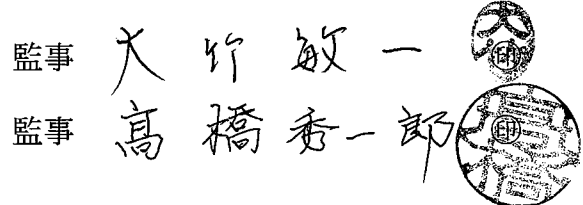 監事 大竹敏一 ㊞
監事 髙橋秀一郎 ㊞